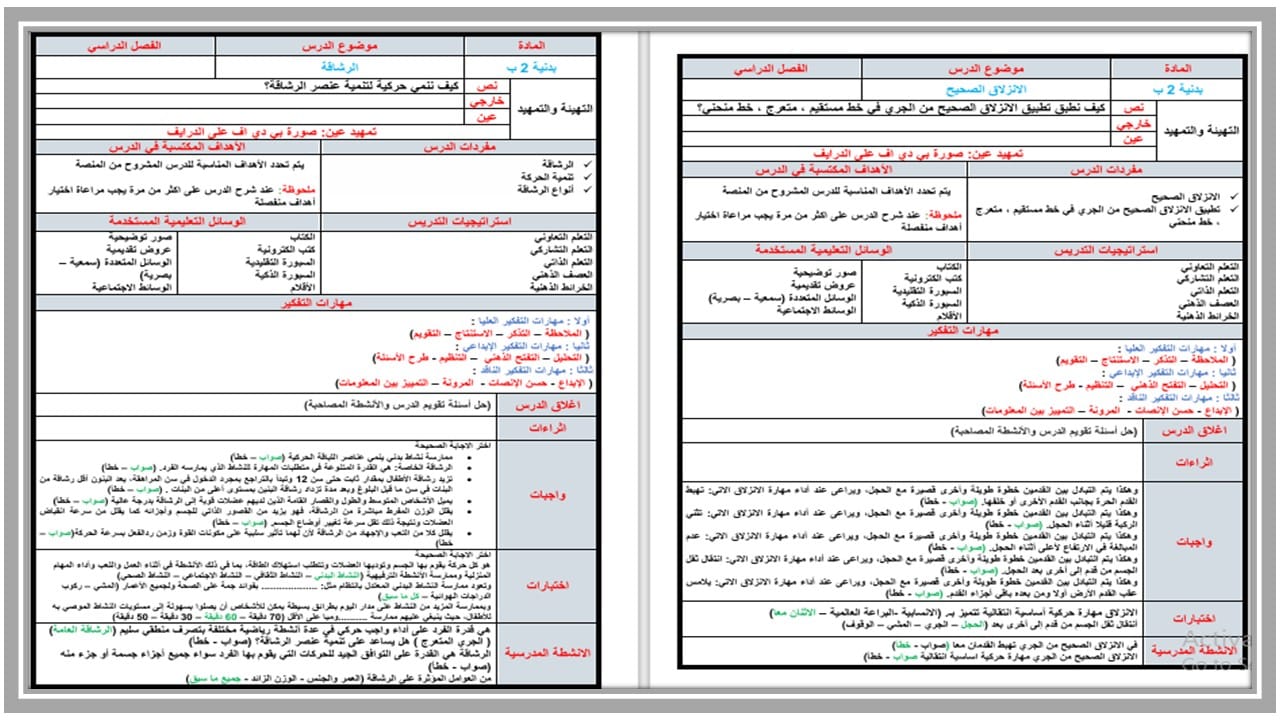 المادة
موضوع الدرس
الفصل الدراسي
بدنية 2 ب
الانزلاق الصحيح
التهيئة والتمهيد
نص
كيف نطبق تطبيق الانزلاق الصحيح من الجري في خط مستقيم ، متعرج ، خط منحني؟
خارجي
عين
تمهيد عين: صورة بي دي اف على الدرايف
مفردات الدرس
الأهداف المكتسبة في الدرس
✓ الانزلاق الصحيح
✓ تطبيق الانزلاق الصحيح من الجري في خط مستقيم ، متعرج
، خط منحني
يتم تحدد الأهداف المناسبة للدرس المشروح من المنصة
ملحوظة: عند شرح الدرس على اكثر من مرة يجب مراعاة اختيار
أهداف منفصلة
استراتيجيات التدريس
الوسائل التعليمية المستخدمة
التعلم التعاوني
التعلم التشاركي
التعلم الذاتي
العصف الذهني
الخرائط الذهنية
الكتاب
كتب الكترونية
السبورة التقليدية
السبورة الذكية
الأقلام
صور توضيحية
عروض تقديمية
الوسائل المتعددة (سمعية – بصرية)
الوسائط الاجتماعية
مهارات التفكير
أولا : مهارات التفكير العليا :
( الملاحظة – التذكر – الاستنتاج – التقويم)
ثانيا : مهارات التفكير الإبداعي :
( التحليل – التفتح الذهني – التنظيم - طرح الأسئلة)
ثالثا : مهارات التفكير الناقد :
( الإبداع - حسن الإنصات - المرونة – التمييز بين المعلومات)
اغلاق الدرس
(حل أسئلة تقويم الدرس والأنشطة المصاحبة)
اثراءات
واجبات
وهكذا يتم التبادل بين القدمين خطوة طويلة وأخرى قصيرة مع الحجل، ويراعى عند أداء مهارة الانزلاق الاتي: تهبط
القدم الحرة بجانب القدم الأخرى أو خلفها. (صواب - خطأ)
وهكذا يتم التبادل بين القدمين خطوة طويلة وأخرى قصيرة مع الحجل، ويراعى عند أداء مهارة الانزلاق الاتي: تثني
الركبة قليلا أثناء الحجل. (صواب - خطأ)
وهكذا يتم التبادل بين القدمين خطوة طويلة وأخرى قصيرة مع الحجل، ويراعى عند أداء مهارة الانزلاق الاتي: عدم
المبالغة في الارتفاع لأعلى أثناء الحجل. (صواب - خطأ)
وهكذا يتم التبادل بين القدمين خطوة طويلة وأخرى قصيرة مع الحجل، ويراعى عند أداء مهارة الانزلاق الاتي: انتقال ثقل
الجسم من قدم إلى أخرى بعد الحجل. (صواب - خطأ)
وهكذا يتم التبادل بين القدمين خطوة طويلة وأخرى قصيرة مع الحجل، ويراعى عند أداء مهارة الانزلاق الاتي: يلامس
عقب القدم الأرض أولا ومن بعده باقي أجزاء القدم. (صواب - خطأ)
اختبارات
الانزلاق مهارة حركية أساسية انتقالية تتميز بـ (الانسيابية -البراعة العالمية – الاثنان معا)
انتقال ثقل الجسم من قدم إلى أخرى بعد (الحجل – الجري – المشي – الوقوف)
الانشطة المدرسية
في الانزلاق الصحيح من الجري تهبط القدمان معا (صواب - خطأ)
الانزلاق الصحيح من الجري مهارة حركية اساسية انتقالية صواب - خطأ)
المادة
موضوع الدرس
الفصل الدراسي
بدنية 2 ب
الرشاقة
التهيئة والتمهيد
نص
كيف ننمي حركية لتنمية عنصر الرشاقة؟
خارجي
عين
تمهيد عين: صورة بي دي اف على الدرايف
مفردات الدرس
الأهداف المكتسبة في الدرس
✓ الرشاقة
✓ تنمية الحركة
✓ أنواع الرشاقة
يتم تحدد الأهداف المناسبة للدرس المشروح من المنصة
ملحوظة: عند شرح الدرس على اكثر من مرة يجب مراعاة اختيار
أهداف منفصلة
استراتيجيات التدريس
الوسائل التعليمية المستخدمة
التعلم التعاوني
التعلم التشاركي
التعلم الذاتي
العصف الذهني
الخرائط الذهنية
الكتاب
كتب الكترونية
السبورة التقليدية
السبورة الذكية
الأقلام
صور توضيحية
عروض تقديمية
الوسائل المتعددة (سمعية –
بصرية)
الوسائط الاجتماعية
مهارات التفكير
أولا : مهارات التفكير العليا :
( الملاحظة – التذكر – الاستنتاج – التقويم)
ثانيا : مهارات التفكير الإبداعي :
( التحليل – التفتح الذهني – التنظيم - طرح الأسئلة)
ثالثا : مهارات التفكير الناقد :
( الإبداع - حسن الإنصات - المرونة – التمييز بين المعلومات)
اغلاق الدرس
(حل أسئلة تقويم الدرس والأنشطة المصاحبة)
اثراءات
واجبات
اختر الاجابة الصحيحة
• ممارسة نشاط بدني ينمي عناصر اللياقة الحركية (صواب – خطأ)
• الرشاقة الخاصة: هي القدرة المتنوعة في متطلبات المهارة للنشاط الذي يمارسه الفرد. (صواب – خطأ)
• تزيد رشاقة الأطفال بمقدار ثابت حتى سن 12 وتبدأ بالتراجع بمجرد الدخول في سن المراهقة، بعد البنون أقل رشاقة من
البنات في سن ما قبل البلوغ وبعد مدة تزداد رشاقة البنين بمستوى أعلى من البنات . (صواب – خطأ)
• يميل الأشخاص المتوسط والطول والقصار القامة الذين لديهم عضلات قوية إلى الرشاقة بدرجة عالية (صواب – خطأ)
• يقلل الوزن المفرط مباشرة من الرشاقة، فهو يزيد من القصور الذاتي للجسم وأجزائه كما يقلل من سرعة انقباض
العضلات ونتيجة ذلك تقل سرعة تغيير أوضاع الجسم. (صواب – خطأ)
• يقلل كلا من التعب والإجهاد من الرشاقة لأن لهما تأثير سلبية على مكونات القوة وزمن ردالفعل بسرعة الحركة(صواب –
خطأ)
اختبارات
اختر الاجابة الصحيحة
هو كل حركة يقوم بها الجسم وتوديها العضلات وتتطلب استهلاك الطاقة، بما في ذلك الأنشطة في أثناء العمل واللعب وأداء المهام
المنزلية وممارسة الأنشطة الترفيهية (النشاط البدني – النشاط الثقافي – النشاط الاجتماعي – النشاط الصحي)
وتعود ممارسة النشاط البدني المعتدل بالانتظام مثل: ................... بفوائد جمة على الصحة ولجميع الاعمار (المشي – ركوب
الدراجات الهوائية – كل ما سبق)
وبممارسة المزيد من النشاط على مدار اليوم بطرائق بسيطة يمكن للأشخاص أن يصلوا بسهولة إلى مستويات النشاط الموصي به
للأطفال، حيث ينبغي عليهم ممارسة ...........وميا على الأقل (70 دقيقة – 60 دقيقة – 30 دقيقة – 50 دقيقة)
الانشطة المدرسية
هي قدرة الفرد على أداء واجب حركي في عدة أنشطة رياضية مختلفة بتصرف منطقي سليم (الرشاقة العامة)
( الجري المتعرج ) هل يساعد على تنمية عنصر الرشاقة؟ (صواب - خطأ)
الرشاقة هي القدرة على التوافق الجيد للحركات التي يقوم بها الفرد سواء جميع أجزاء جسمة أو جزء منه
(صواب - خطأ)
من العوامل المؤثرة على الرشاقة (العمر والجنس - الوزن الزائد - جميع ما سبق)